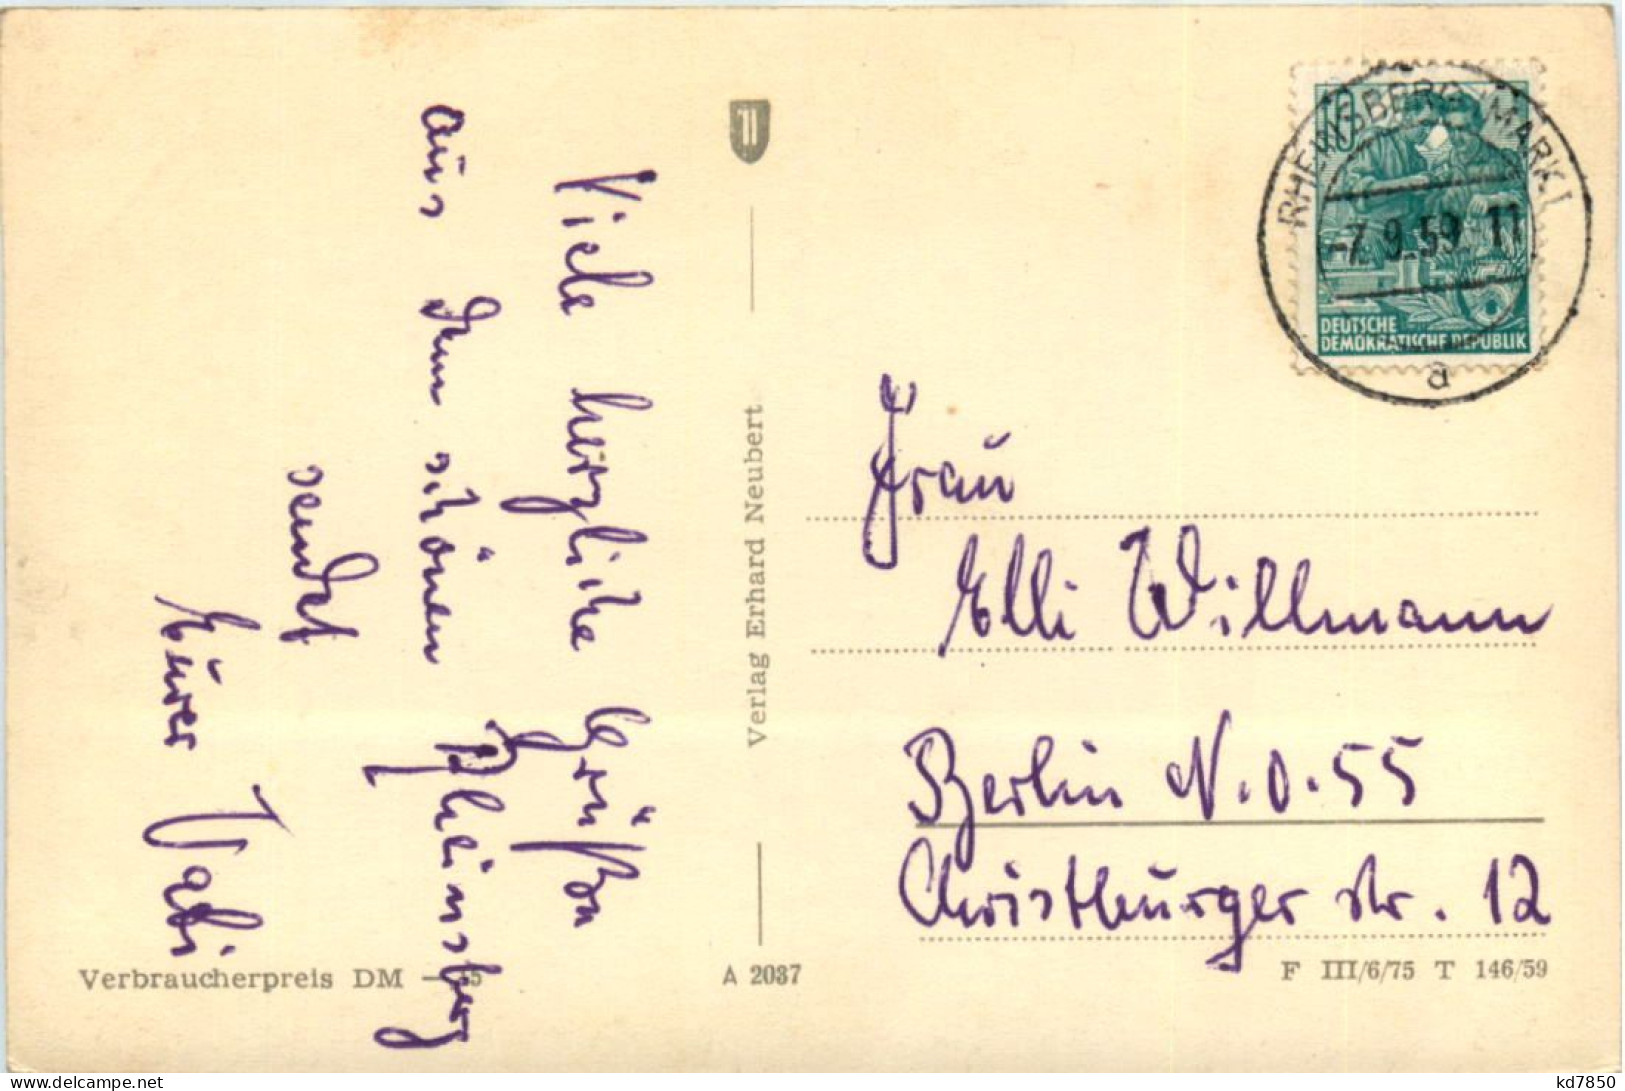 Viele herzliche Grüße
aus dem schönen Rheinsberg
sendet
Eurer Vati
Verlag Erhard Neubert
10
DEUTSCHE
DEMOKRATISCHE REPUBLIK
RHEINSBERG (MARK)
-7.9.59-11
a
Frau
Elli Willmann
Berlin N.O.55
Christburger Str. 12
Verbraucherpreis DM
A 2037
F III/6/75 T 146/59
delcampe.net
kd7850